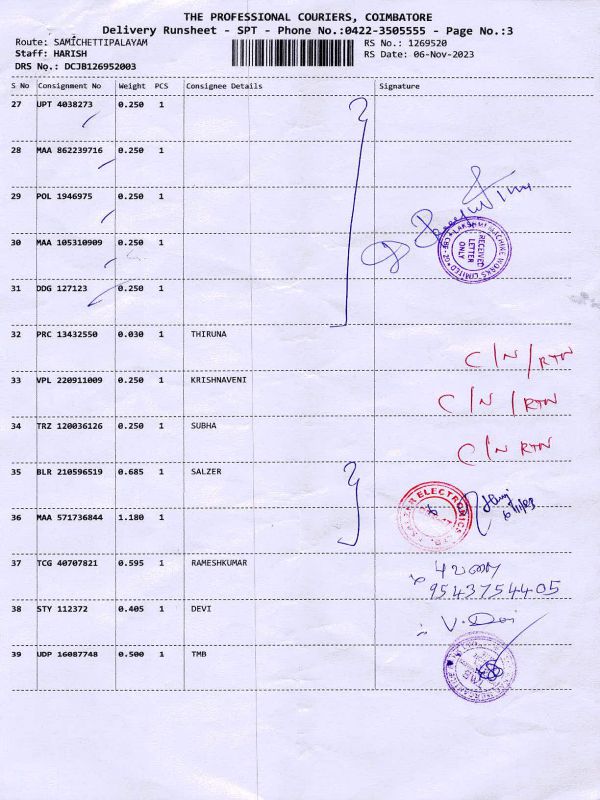 THE PROFESSIONAL COURIERS, COIMBATORE
Delivery Runsheet - SPT - Phone No.:0422-3505555 - Page No.:3
Route: SAMICHETTIPALAYAM
RS No.: 1269520
Staff: HARISH
RS Date: 06-Nov-2023
DRS No.: DCJB126952003
S No Consignment No Weight PCS Consignee Details Signature
27 UPT 4038273 0.250 1
28 MAA 862239716 0.250 1
29 POL 1946975 0.250 1
30 MAA 105310909 0.250 1
RECEIVED LETTER ONLY
31 DDG 127123 0.250 1
32 PRC 13432550 0.030 1 THIRUNA
C/N/RTN
33 VPL 220911009 0.250 1 KRISHNAVENI
C/N/RTN
34 TRZ 120036126 0.250 1 SUBHA
C/N RTN
35 BLR 210596519 0.685 1 SALZER
SALZER ELECTRONICS
6/11/23
36 MAA 571736844 1.180 1
37 TCG 40707821 0.595 1 RAMESHKUMAR
9543754405
38 STY 112372 0.405 1 DEVI
V. Devi
39 UDP 16087748 0.500 1 TMB